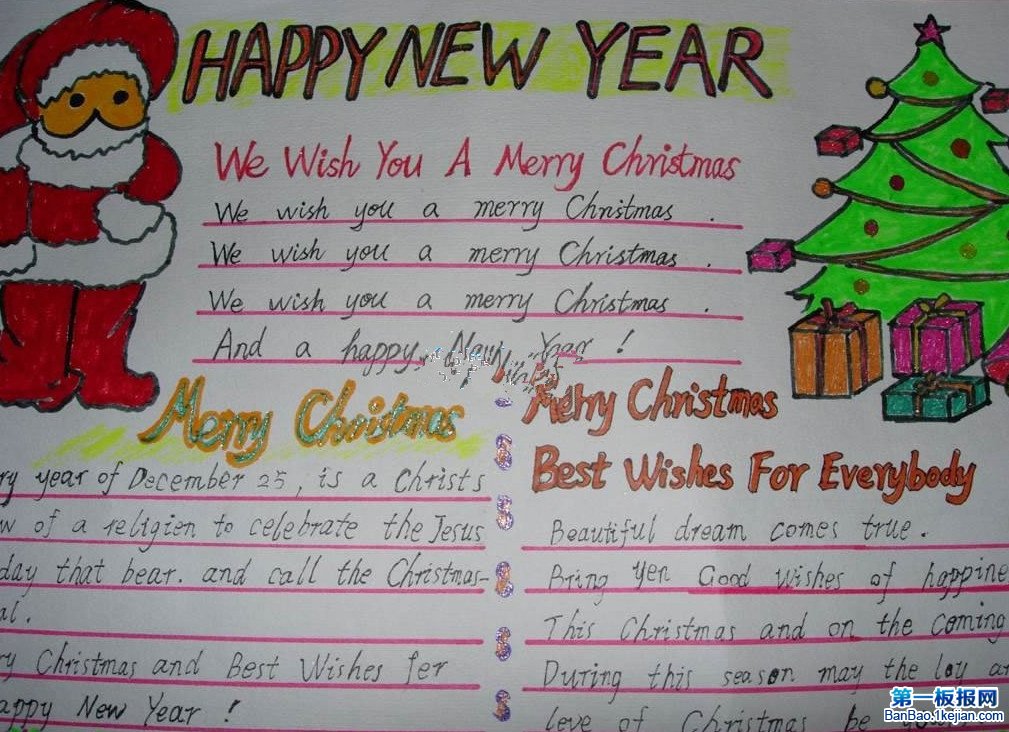 HAPPY NEW YEAR
We Wish You A Merry Christmas
We wish you a merry Christmas .
We wish you a merry Christmas .
We wish you a merry Christmas .
And a happy New Year !
Merry Christmas
ry year of December 25, is a Christs
w of a religien to celebrate the Jesus
day that bear. and call the Christmas-
al.
ry Christmas and Best Wishes fer
appy New Year !
Merry Christmas
Best Wishes For Everybody
Beautiful dream comes true.
Bring yen Good wishes of happine
This Christmas and on the coming
During this season may the loy an
leve of Christmas be
第一板报网
BanBao.1kejian.com